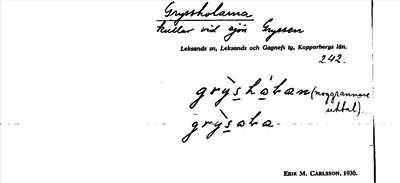 Grysstholarna
kullar vid sjön Gryssen
Leksands sn, Leksands och Gagnefs tg, Kopparbergs län.
242.
(noggrannare
uttal).
ERIK M. CARLSSON, 1936.